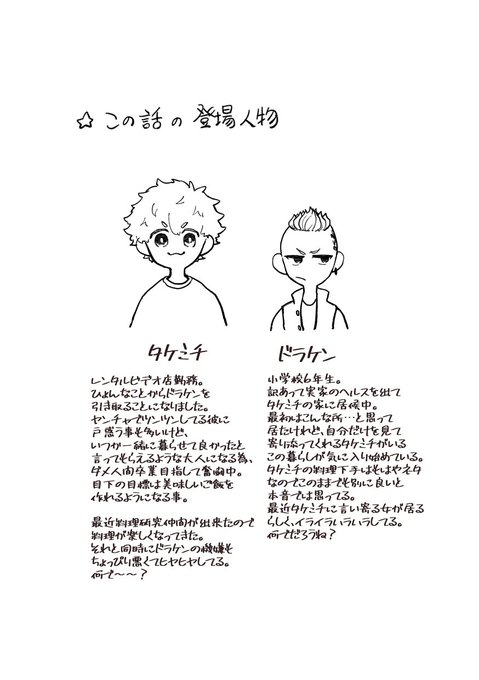 ☆ この話の登場人物
タケミチ
レンタルビデオ店勤務。
ひょんなことからドラケンを
引き取ることになりました。
ヤンチャでツンツンしてる彼に
戸惑う事も多いけど、
いつか一緒に暮らせて良かったと
言ってもらえるような大人になる為、
ダメ人間卒業目指して奮闘中。
目下の目標は美味しいご飯を
作れるようになる事。
最近料理研究仲間が出来たので
料理が楽しくなってきた。
それと同時にドラケンの機嫌も
ちょっぴり悪くてヒヤヒヤしてる。
何で〜〜?
ドラケン
小学校6年生。
訳あって実家のヘルスを出て
タケミチの家に居候中。
最初はこんな所…と思って
居たけれど、自分だけを見て
寄り添ってくれるタケミチがいる
この暮らしが気に入り始めている。
タケミチの料理下手はもはやネタ
なのでこのままでも別に良いと
本音では思ってる。
最近タケミチに言い寄る女が居る
らしく、イライラいらいらしてる。
何でだろうね?